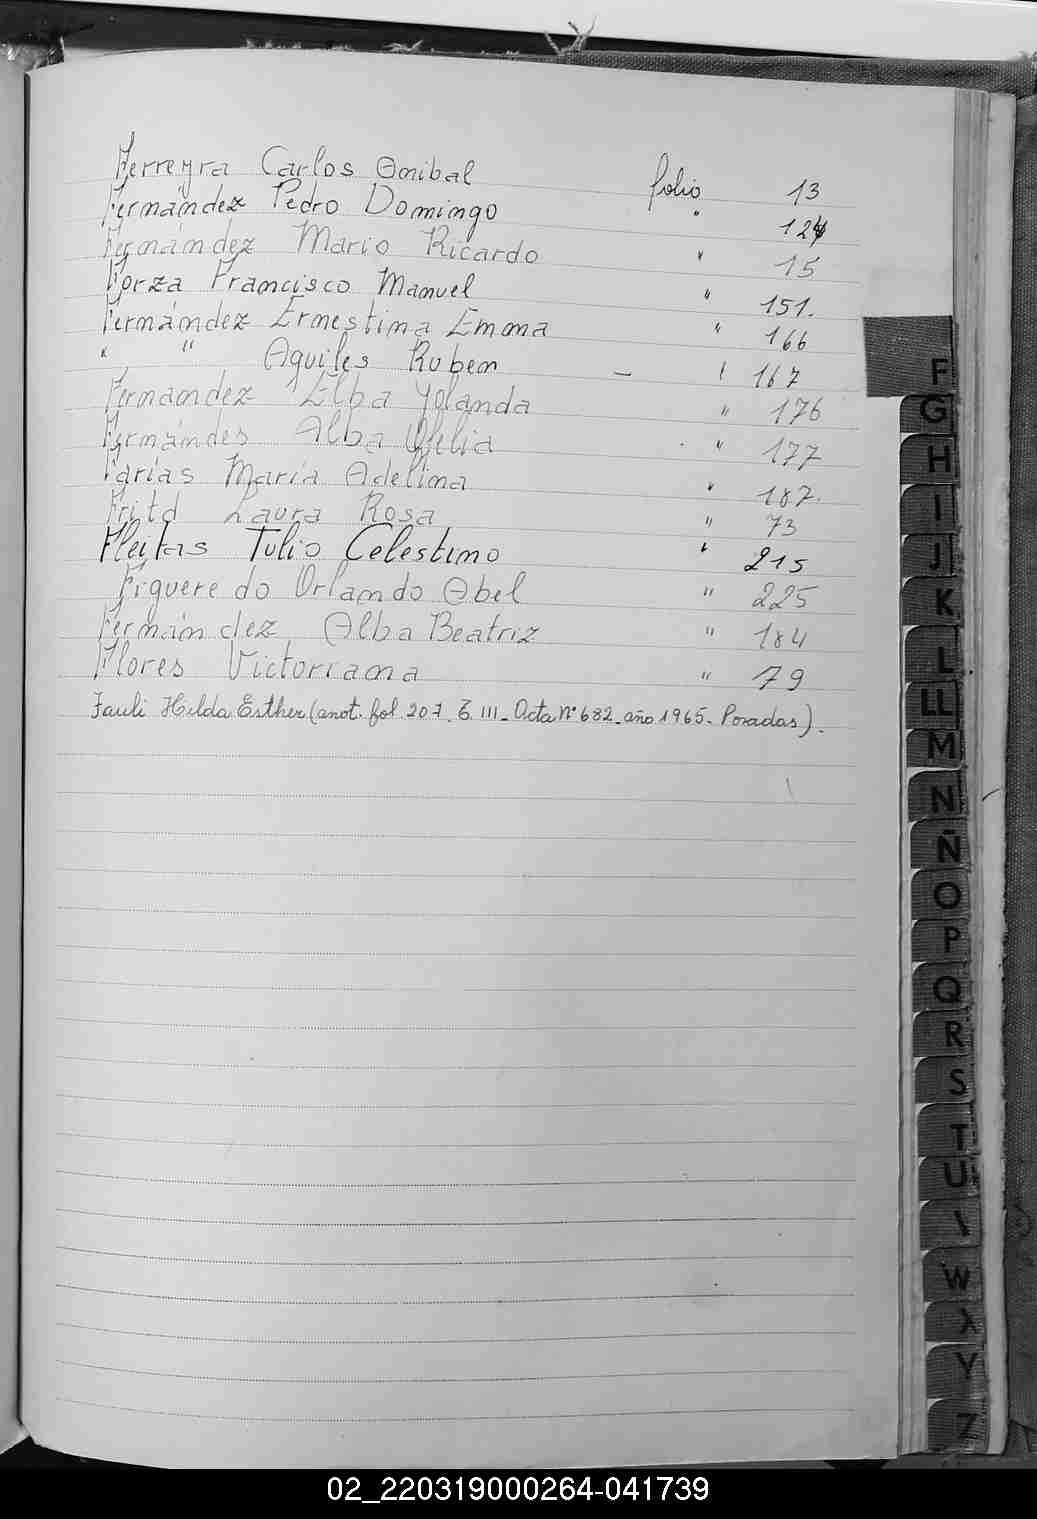 Ferreyra Carlos Anibal folio 13
Fernández Pedro Domingo " 124
Fernández Mario Ricardo " 15
Forza Francisco Manuel " 151.
Fernández Ernestina Emma " 166
" " Aquiles Ruben — " 167
Fernandez Elba Yolanda " 176
Fernández Alba Ofelia " 177
Farías María Adelina " 187.
Fritd Laura Rosa " 73
Fleitas Tulio Celestino " 215
Figueredo Orlando Abel " 225
Fernández Alba Beatriz " 184
Flores Victoriana " 79
Fauli Hilda Esther (anot. fol 207. T. III_ Acta Nº 682_ año 1965_ Posadas).
F
G
H
I
J
K
L
LL
M
N
Ñ
O
P
Q
R
S
T
U
W
X
Y
Z
02_220319000264-041739